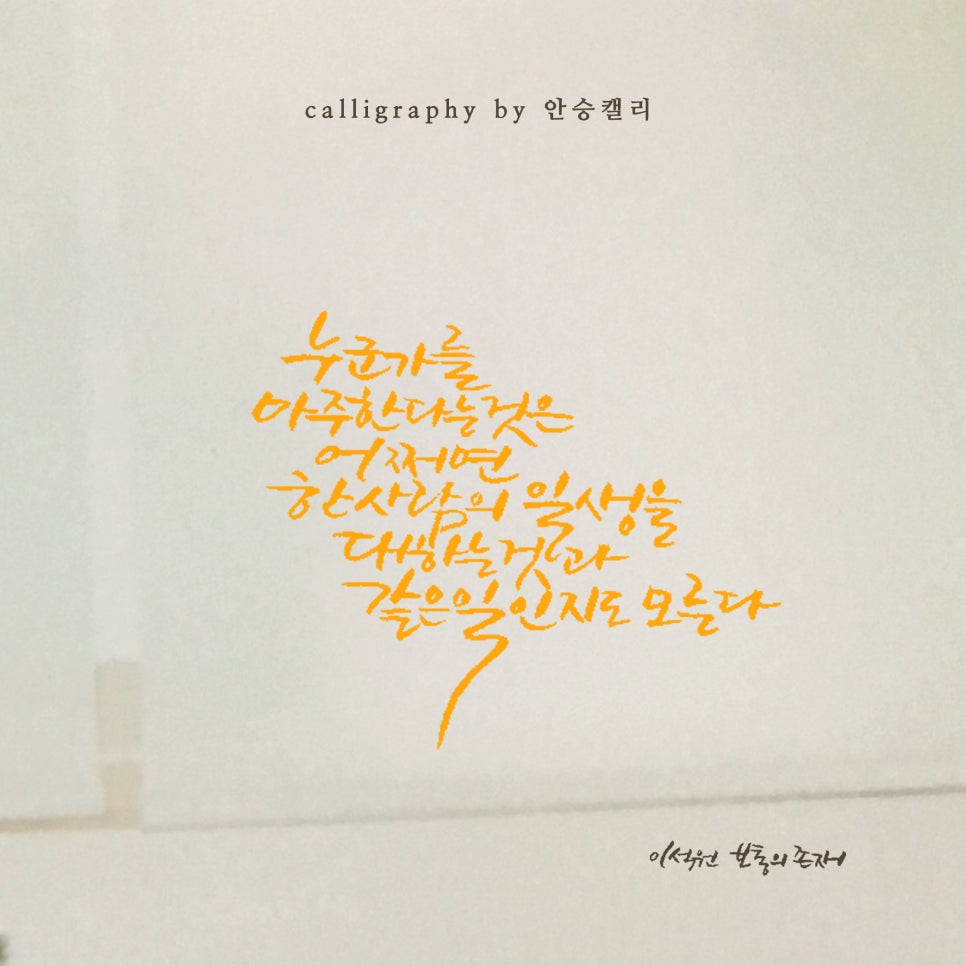 calligraphy by 안승캘리
누군가를
마주한다는것은
어쩌면
한사람의 일생을
대하는것과
같은일인지도 모른다
이석원 보통의 존재